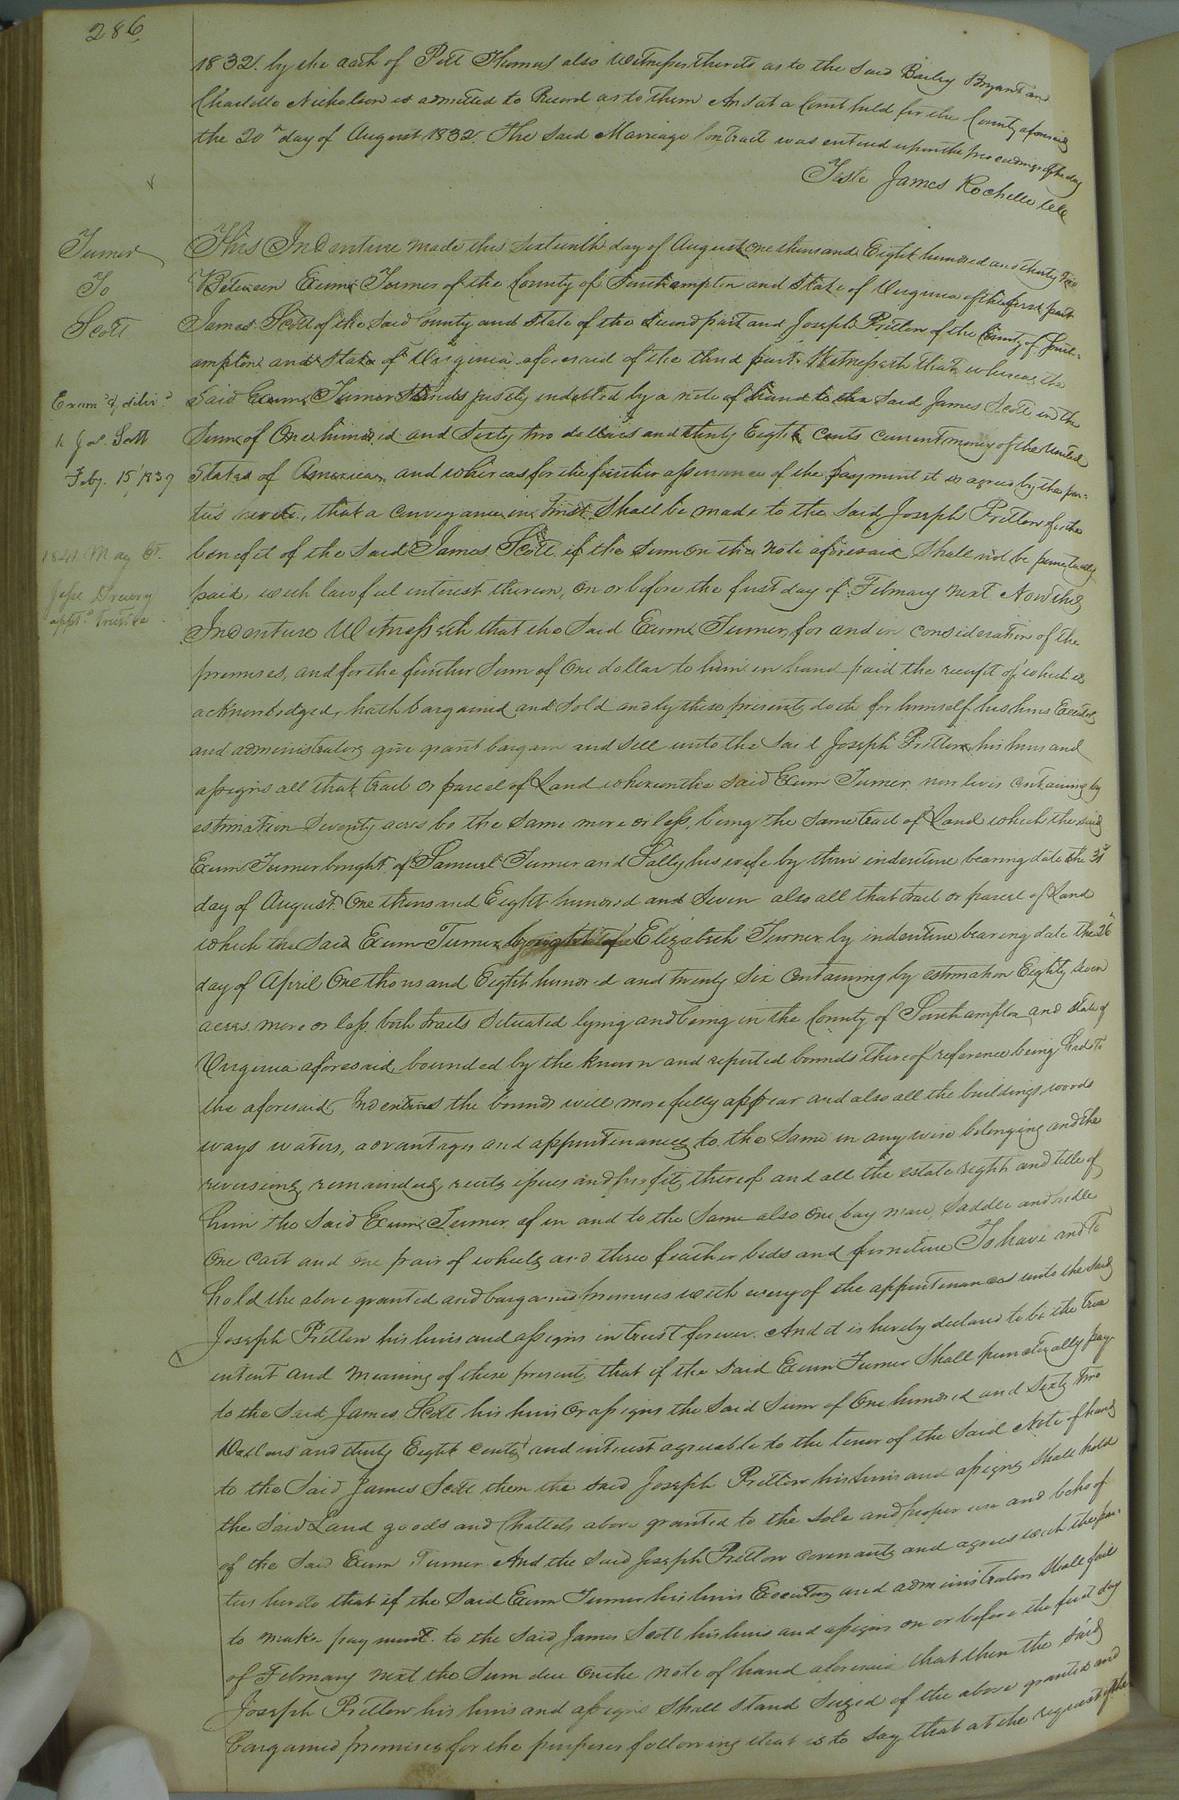 286
1832. by the oath of Pett Thomas also Witnesses thereto as to the said Bailey Bryant and
Charlotte Nicholson is admitted to Record as to them And at a Court held for the County aforesaid
the 20th day of August 1832. The said Marriage Contract was entered upon the proceedings of the day
Teste James Rochelle Clk
Turner
To
Scott
Exam.d & deliv.d
to Jas. Scott
Feby. 15, 1839
1841 May Ct.
Jesse Drewry
appt.d trustee
This Indenture made this Sixteenth day of August one thousand Eight hundred and thirty two
Between Exum Turner of the County of Southampton and State of Virginia of the first part
James Scott of the said County and State of the Second part and Joseph Pretlow of the County of South-
ampton and State of Virginia aforesaid of the third part. Witnesseth that whereas the
said Exum Turner stands justly indebted by a note of hand to the said James Scott in the
Sum of One hundred and Sixty two dollars and thirty Eight cents current money of the United
States of American, and whereas for the further assurance of the payment it is agreed by the par-
ties hereto, that a conveyance in Trust Shall be made to the Said Joseph Pretlow for the
benefit of the Said James Scott if the Sum on the note aforesaid Shall not be punctually
paid, with lawful interest thereon, on or before the first day of February next Now this
Indenture Witnesseth that the Said Exum Turner, for and in consideration of the
premises, and for the further Sum of One dollar to him in hand paid the receipt of which is
acknowledged, hath bargained and Sold and by these presents doth for himself his heirs Executors
and administrators give grant bargain and Sell unto the Said Joseph Pretlow, his heirs and
assigns all that tract or parcel of Land whereon the said Exum Turner now lives containing by
estimation Seventy acres be the Same more or less, being the same tract of Land which the said
Exum Turner bought of Samuel Turner and Sally his wife by their indenture bearing date the 31st
day of August One thousand Eight hundred and Seven also all that tract or parcel of Land
which the Said Exum Turner bought of Elizabeth Turner by indenture bearing date the 26th
day of April One thousand Eight hundred and twenty Six Containing by estimation Eighty Seven
acres more or less, both tracts Situated lying and being in the County of Southampton and State of
Virginia aforesaid, bounded by the known and reputed bounds thereof reference being had to
the aforesaid Indentures the bounds will more fully appear and also all the buildings, woods
ways waters, advantages and appurtenances, to the Same in any wise belonging and the
reversions, remainders, rents, issues and profits thereof and all the estate right and title of
him the Said Exum Turner of in and to the Same also One bay mare, Saddle and bridle
One cart and one pair of wheels and three feather beds and furniture To have and To
hold the above granted and bargained premises with every of the appurtenances unto the said
Joseph Pretlow his heirs and assigns in trust forever. And it is hereby declared to be the true
intent and meaning of these present, that if the said Exum Turner Shall punctually pay
to the Said James Scott his heirs Or assigns the Said Sum of One hundred and Sixty Two
Dollars and thirty Eight cents and interest agreeable to the tenor of the Said Note of hand
to the Said James Scott then the said Joseph Pretlow his heirs and assigns shall hold
the Said Land goods and Chattels above granted to the Sole and proper use and behoof
of the Said Exum Turner And the Said Joseph Pretlow covenants and agrees with the par-
ties hereto that if the Said Exum Turner his heirs Executors and administrators Shall fail
to make payment to the Said James Scott his heirs and assigns on or before the first day
of February next the Sum due on the note of hand aforesaid that then the said
Joseph Pretlow his heirs and assigns Shall stand Seized of the above granted and
bargained premises for the purposes following that is to say that at the request of the